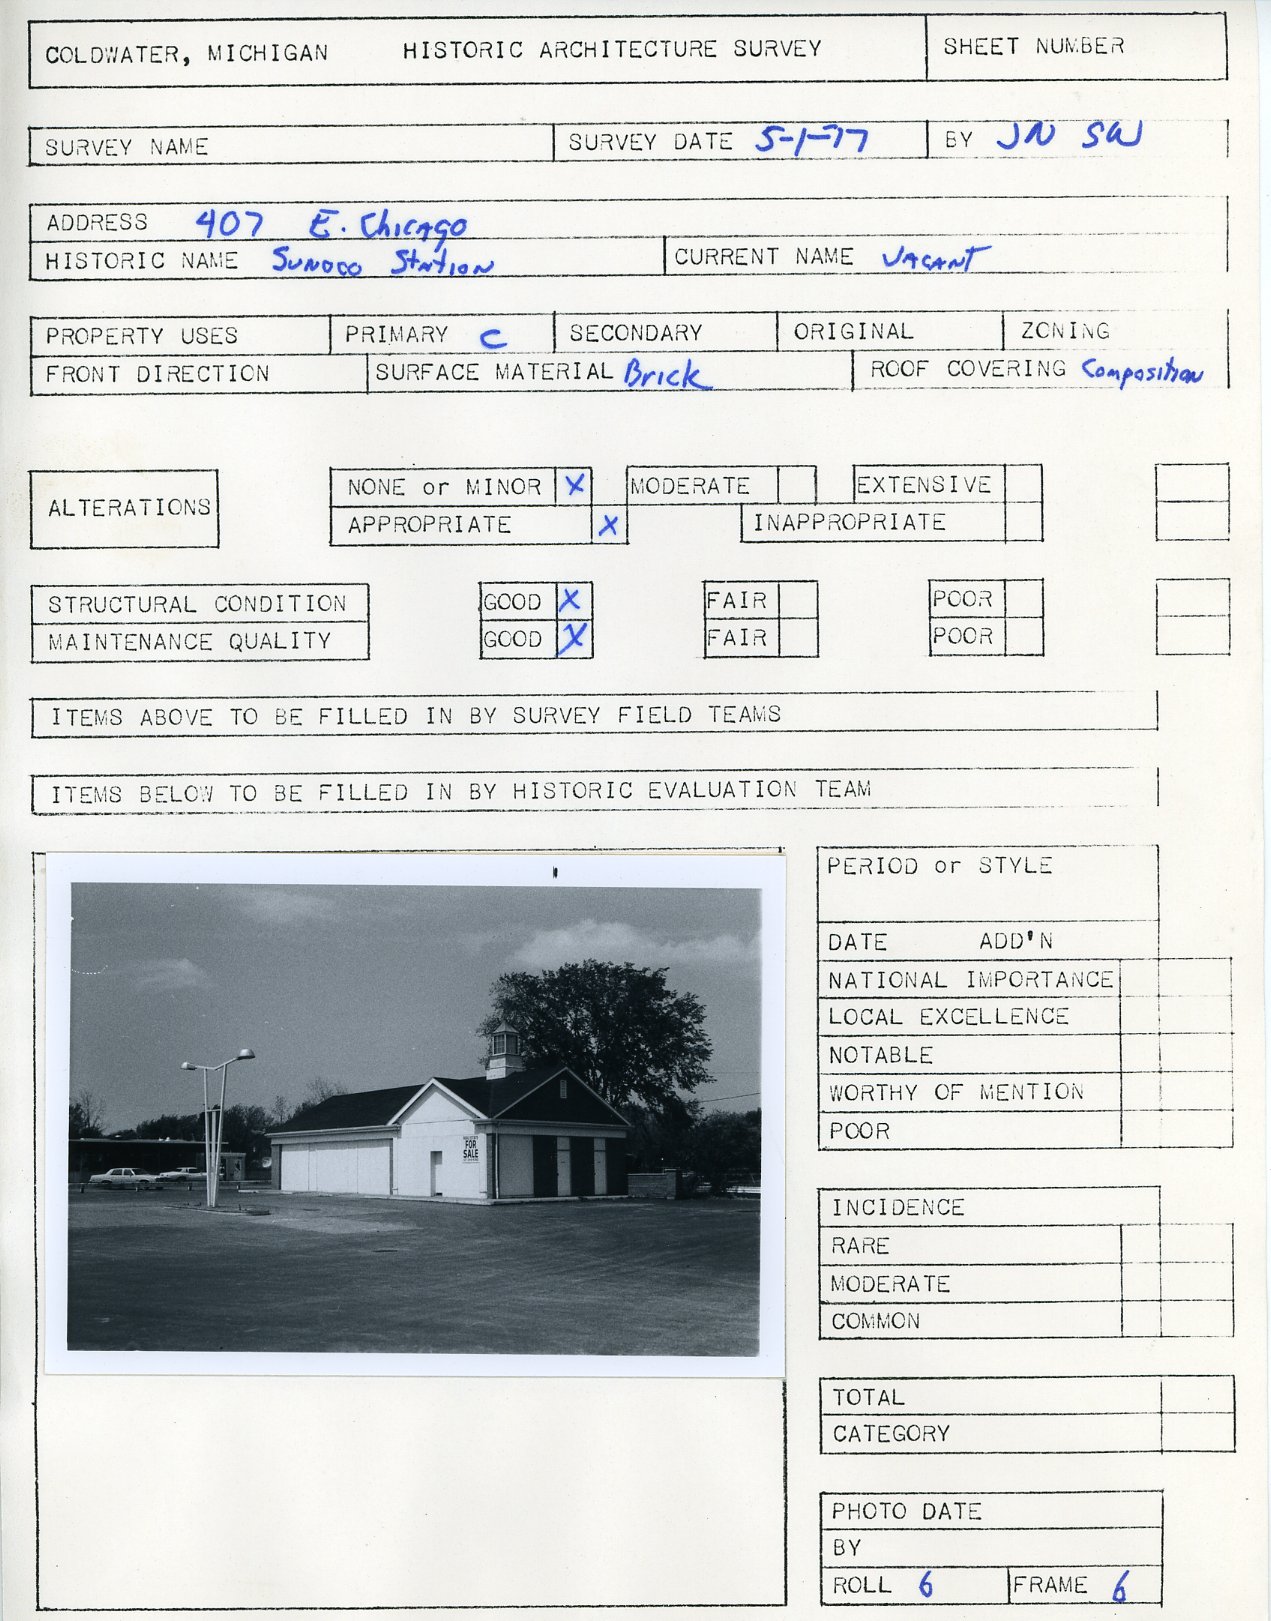 COLDWATER, MICHIGAN HISTORIC ARCHITECTURE SURVEY SHEET NUMBER
SURVEY NAME SURVEY DATE 5-1-77 BY JN SW
ADDRESS 407 E. Chicago
HISTORIC NAME Sunoco Station CURRENT NAME Vacant
PROPERTY USES PRIMARY C SECONDARY ORIGINAL ZONING
FRONT DIRECTION SURFACE MATERIAL Brick ROOF COVERING Composition
ALTERATIONS NONE or MINOR X MODERATE EXTENSIVE
APPROPRIATE X INAPPROPRIATE
STRUCTURAL CONDITION GOOD X FAIR POOR
MAINTENANCE QUALITY GOOD X FAIR POOR
ITEMS ABOVE TO BE FILLED IN BY SURVEY FIELD TEAMS
ITEMS BELOW TO BE FILLED IN BY HISTORIC EVALUATION TEAM
FOR
SALE
PERIOD or STYLE
DATE ADD'N
NATIONAL IMPORTANCE
LOCAL EXCELLENCE
NOTABLE
WORTHY OF MENTION
POOR
INCIDENCE
RARE
MODERATE
COMMON
TOTAL
CATEGORY
PHOTO DATE
BY
ROLL 6 FRAME 6